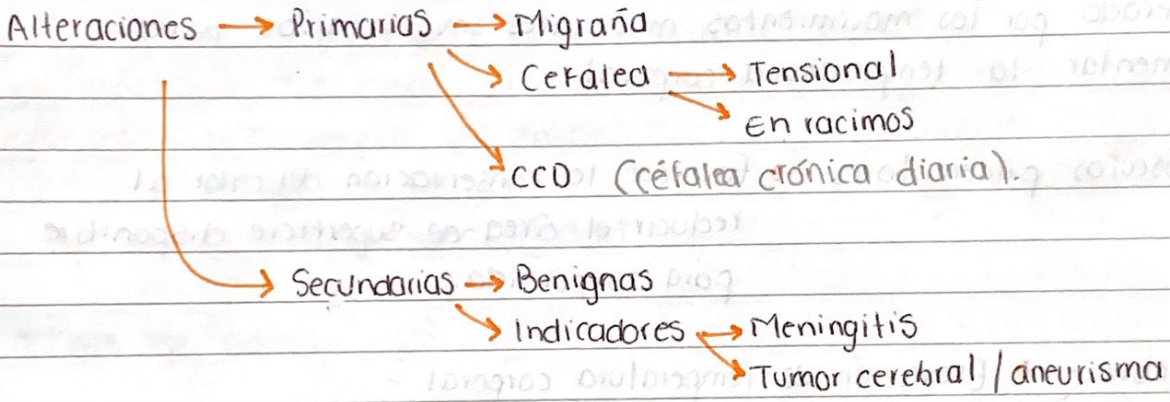 Alteraciones → Primarias → Migraña
Cefalea → Tensional
En racimos
CCD (céfalea crónica diaria).
Secundarias → Benignas
Indicadores → Meningitis
Tumor cerebral / aneurisma